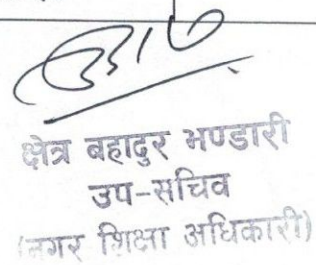 क्षेत्र बहादुर भण्डारी
उप-सचिव
(नगर शिक्षा अधिकारी)